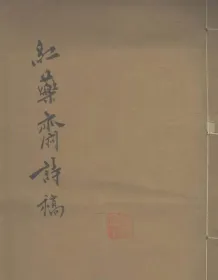 紅藥齋詩稿